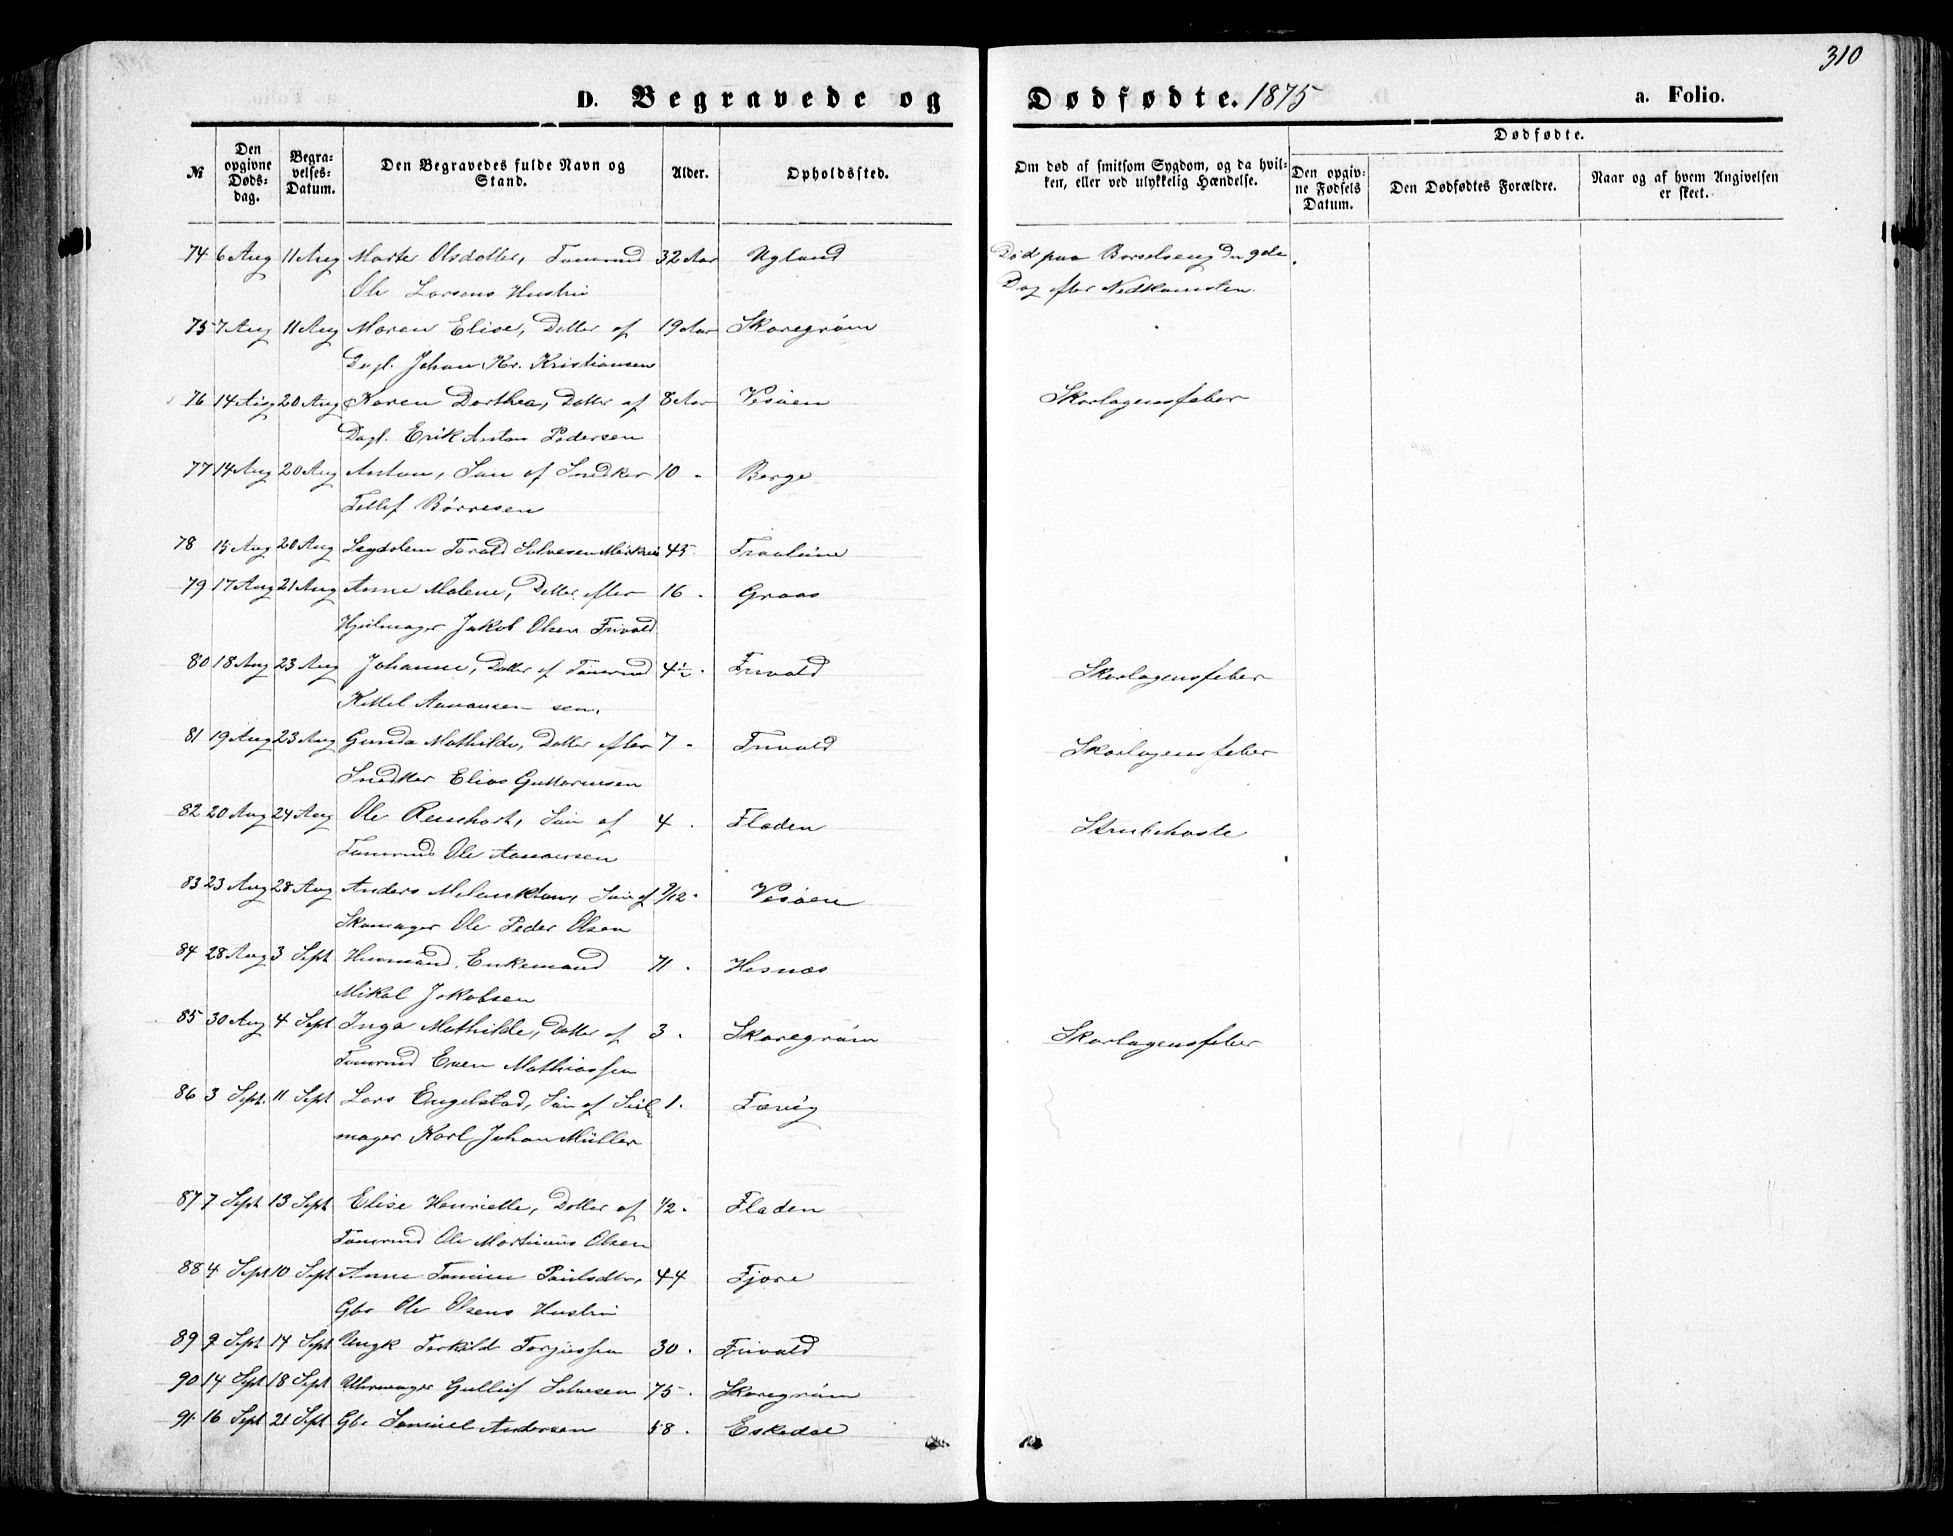 310
D. Begravede og Dødfødte. 1875 a. Folio.
Dødfødte.
№
Den opgivne Døds-dag.
Begra-velses-Datum.
Den Begravedes fulde Navn og Stand.
Alder.
Opholdssted.
Om død af smitsom Sygdom, og da hvil-ken, eller ved ulykkelig Hændelse.
Den opgiv-ne Fødsels Datum.
Den Dødfødtes Forældre.
Naar og af hvem Angivelsen er skeet.
74 6 Aug 11 Aug Marte Olsdatter, Tømmd 32 Aar Ugland Død paa Barselseng den 9de
Ole Larsens Hustru Dag efter Nedkomsten.
75 7 Aug 11 Aug Maren Elise, Datter af 19 Aar Skaregrøm
Dagl. Johan Kr. Kristiansen
76 14 Aug 20 Aug Karen Dorthea, Datter af 8 Aar Vesøen Skarlagensfeber
Dagl. Erik Anton Pedersen
77 14 Aug 20 Aug Anton, Søn af Snedker 10 - Berge
Tellef Børresen
78 15 Aug 20 Aug Sagdolen Tarald Salvesen 45
79 17 Aug 21 Aug Anne Malene, Datter efter 16 - Graas
Hjulmager Jakob Olsen Frivold
80 18 Aug 23 Aug Johanne, Datter af Tømmd 4½ - Frivold Skarlagensfeber
Kittel Aanonsen sen.
81 19 Aug 23 Aug Gunda Mathilde, Datter efter 7 - Frivold Skarlagensfeber
Snedker Elias Guttormsen
82 20 Aug 24 Aug Ole Reinhart, Søn af 4 - Fladen Strubehoste
Tømmd Ole Aanonsen
83 23 Aug 28 Aug Anders Melankton, Søn af 9/12 - Vesøen
Skomager Ole Peder Olsen
84 28 Aug 3 Sept Huusmand, Enkemand 71 - Hesnæs
Mikal Jakobsen
85 30 Aug 4 Sept Inga Mathilde, Datter af 3 - Skaregrøm Skarlagensfeber
Tømmd Even Mathiassen
86 3 Sept. 11 Sept Lars Engelstad, Søn af Seil- 1 - Færvig
mager Karl Johan Müller
87 7 Sept 13 Sept Elise Henriette, Datter af 1/2 - Fladen
Tømmd Ole Martinius Olsen
88 4 Sept 10 Sept Anne Tomine Paulsdtr, 44 Fjære
Gbr Ole Olsens Hustru
89 9 Sept 14 Sept Ungk Torkild Torjussen 30 - Frivold
90 14 Sept 18 Sept Uhrmager Gulluf Salvesen 75 - Skaregrøm
91 16 Sept 21 Sept Gbr Samuel Andersen 58 - Eskedal